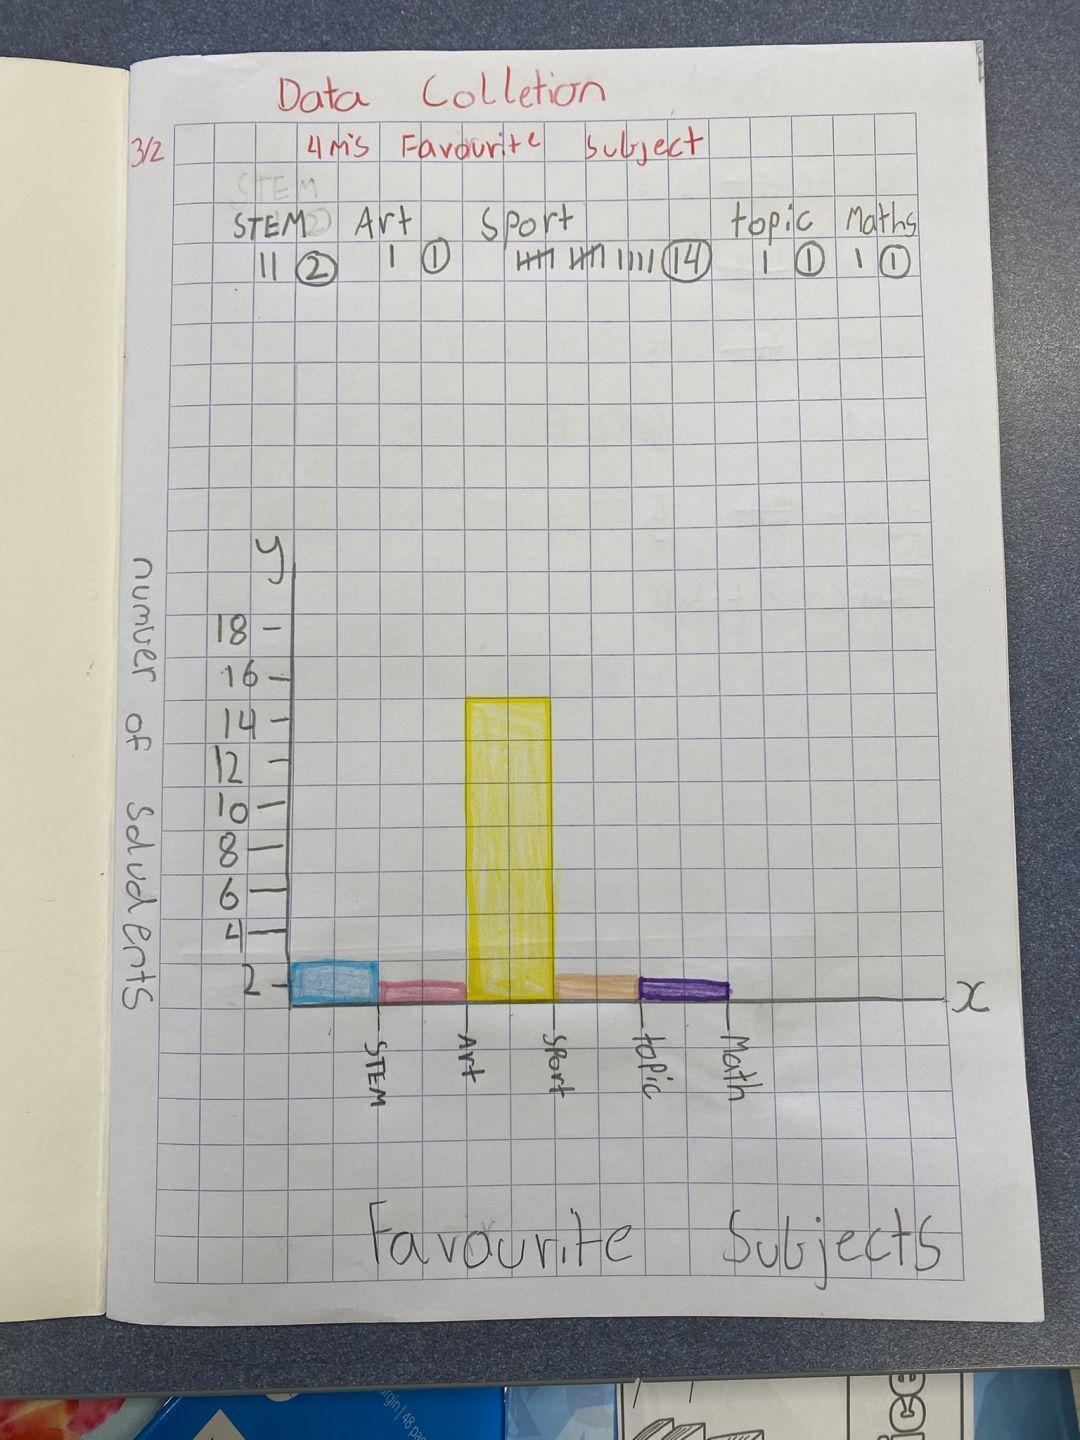 Data Colletion
3/2
4M's Favourite Subject
STEM
STEM Art Sport topic Maths
2 1 14 1 1
y
number of sdudents
18
16
14
12
10
8
6
4
2
x
STEM
Art
Sport
topic
Math
Favourite Subjects
48
ice